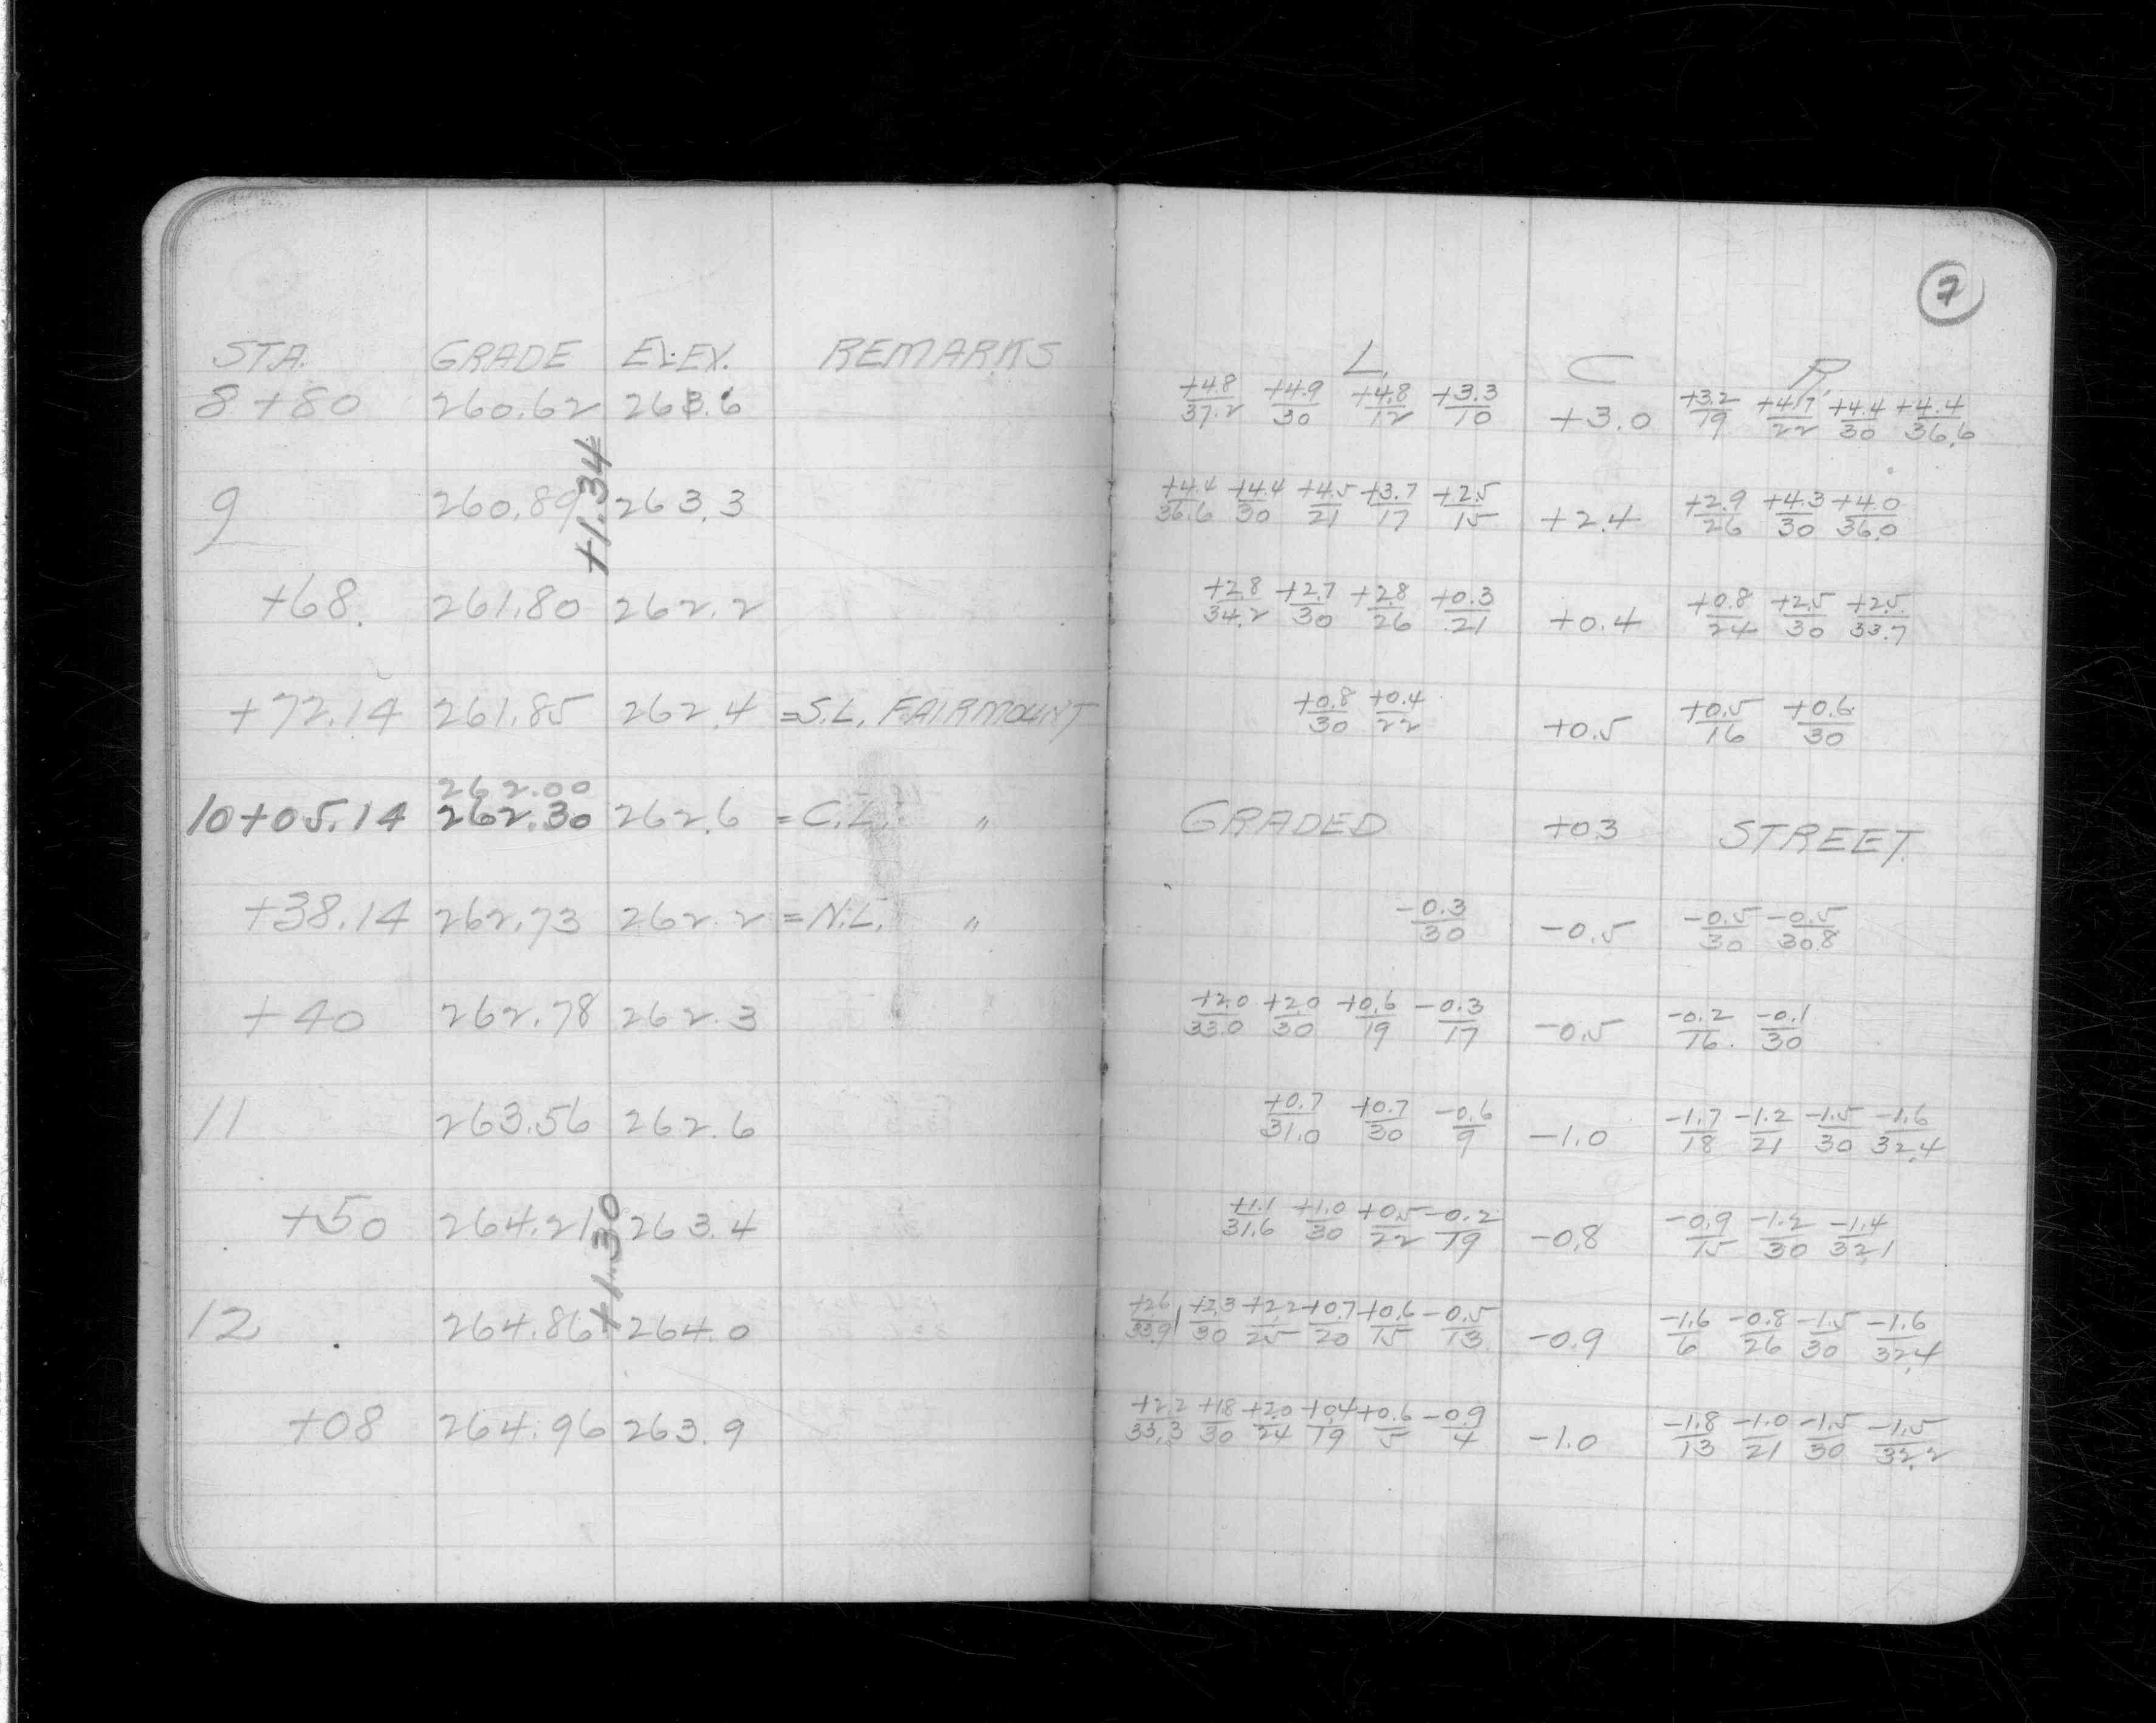 7
STA. GRADE ELEV. REMARKS L. C R.
8+80 260.62 263.6 +4.8/37.2 +4.9/30 +4.8/12 +3.3/10 +3.0 +3.2/19 +4.7/22 +4.4/30 +4.4/36.6
+1.34
9 260.89 263.3 +4.4/36.6 +4.4/30 +4.5/21 +3.7/17 +2.5/15 +2.4 +2.9/26 +4.3/30 +4.0/36.0
+68. 261.80 262.2 +2.8/34.2 +2.7/30 +2.8/26 +0.3/21 +0.4 +0.8/24 +2.5/30 +2.5/33.7
+72.14 261.85 262.4 =S.L. FAIRMOUNT +0.8/30 +0.4/22 +0.5 +0.5/16 +0.6/30
262.00
10+05.14 262.30 262.6 =C.L. " GRADED +0.3 STREET.
+38.14 262.73 262.2 =N.L. " -0.3/30 -0.5 -0.5/30 -0.5/30.8
+40 262.78 262.3 +2.0/33.0 +2.0/30 +0.6/19 -0.3/17 -0.5 -0.2/16. -0.1/30
11 263.56 262.6 +0.7/31.0 +0.7/30 -0.6/9 -1.0 -1.7/18 -1.2/21 -1.5/30 -1.6/32.4
+50 264.21 263.4 +1.1/31.6 +1.0/30 +0.5/22 -0.2/19 -0.8 -0.9/15 -1.2/30 -1.4/32.1
+1.30
12 264.86 264.0 +2.6/33.9 +2.3/30 +2.2/25 +0.7/20 +0.6/15 -0.5/13 -0.9 -1.6/6 -0.8/26 -1.5/30 -1.6/32.4
+08 264.96 263.9 +2.2/33.3 +1.8/30 +2.0/24 +0.4/19 +0.6/5 -0.9/4 -1.0 -1.8/13 -1.0/21 -1.5/30 -1.5/32.2